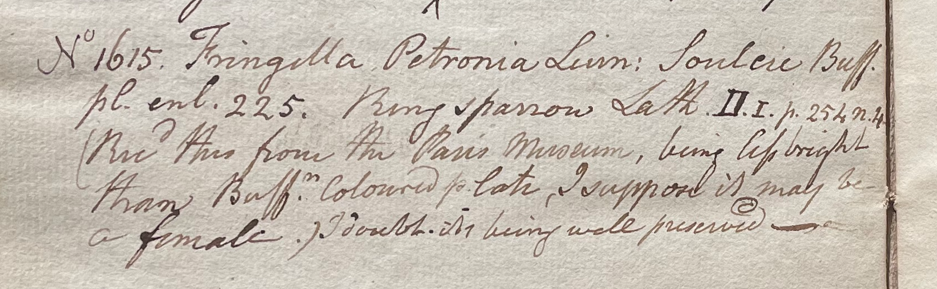 No 1615. Fringilla Petronia Linn: Soulcie Buff.
pl. enl. 225. Ring sparrow Lath. II. I. p. 254 n. 4.
(Recd this from the Paris Museum, being less bright
than Buffn. Coloured plate, I suppose it may be
a female.) I doubt its being well preserved